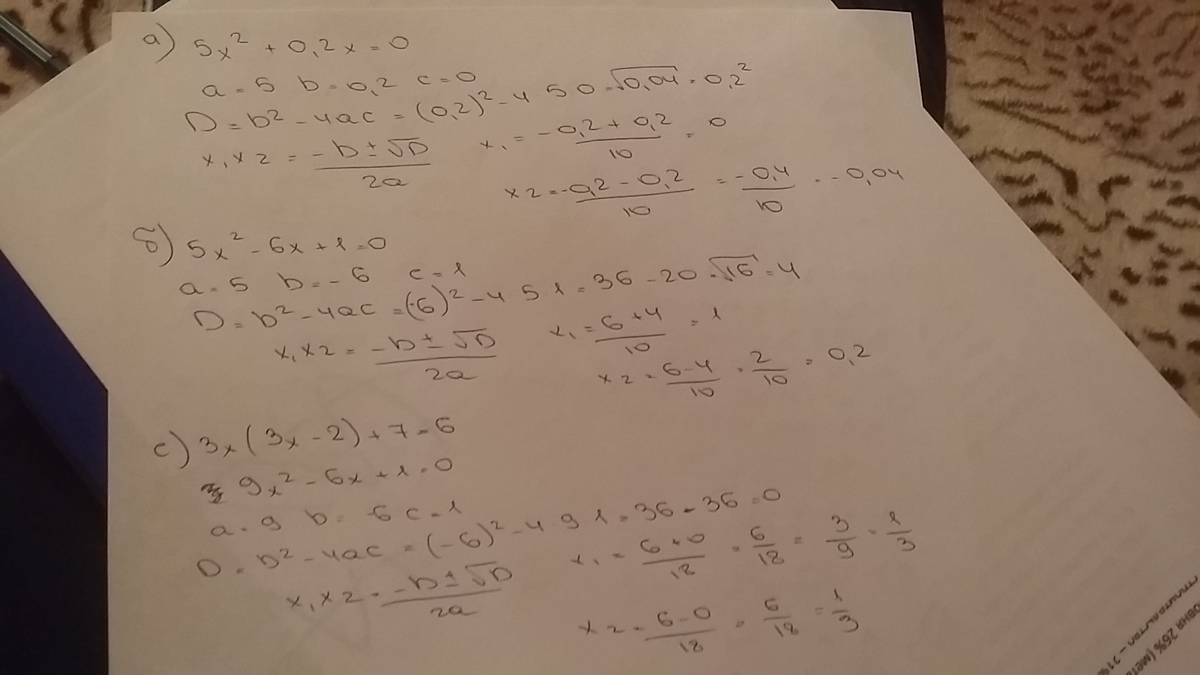 а) 5x² + 0,2x = 0
a = 5 b = 0,2 c = 0
D = b² - 4ac = (0,2)² - 4 5 0 = √0,04 = 0,2²
x₁x2 = -b ± √D / 2a
x₁ = -0,2 + 0,2 / 10 = 0
x2 = -0,2 - 0,2 / 10 = -0,4 / 10 = -0,04
б) 5x² - 6x + 1 = 0
a = 5 b = -6 c = 1
D = b² - 4ac = (-6)² - 4 5 1 = 36 - 20 = √16 = 4
x₁x2 = -b ± √D / 2a
x₁ = 6 + 4 / 10 = 1
x2 = 6 - 4 / 10 = 2 / 10 = 0,2
c) 3x(3x - 2) + 7 = 6
9x² - 6x + 1 = 0
a = 9 b = -6 c = 1
D = b² - 4ac = (-6)² - 4 9 1 = 36 - 36 = 0
x₁x2 = -b ± √D / 2a
x₁ = 6 + 0 / 18 = 6 / 18 = 3 / 9 = 1 / 3
x2 = 6 - 0 / 18 = 6 / 18 = 1 / 3